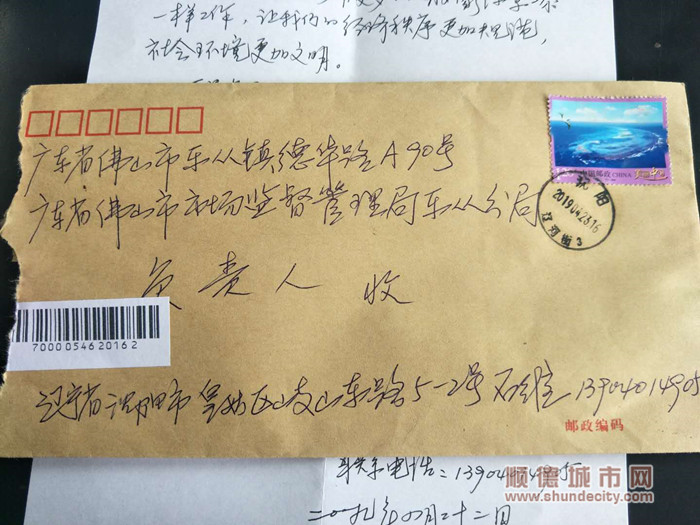 一样工作，让我们的经济秩序更加规范，
社会环境更加文明。
中国邮政 CHINA
沈阳
2019.04.23.16
广东省佛山市乐从镇德华路A90号
广东省佛山市市场监督管理局乐从分局
负责人 收
7000054620162
辽宁省沈阳市皇姑区岐山东路5-2号 13904014905
邮政编码
联系电话：1390401490
二〇一九年四月二十二日
顺德城市网
www.shundecity.com